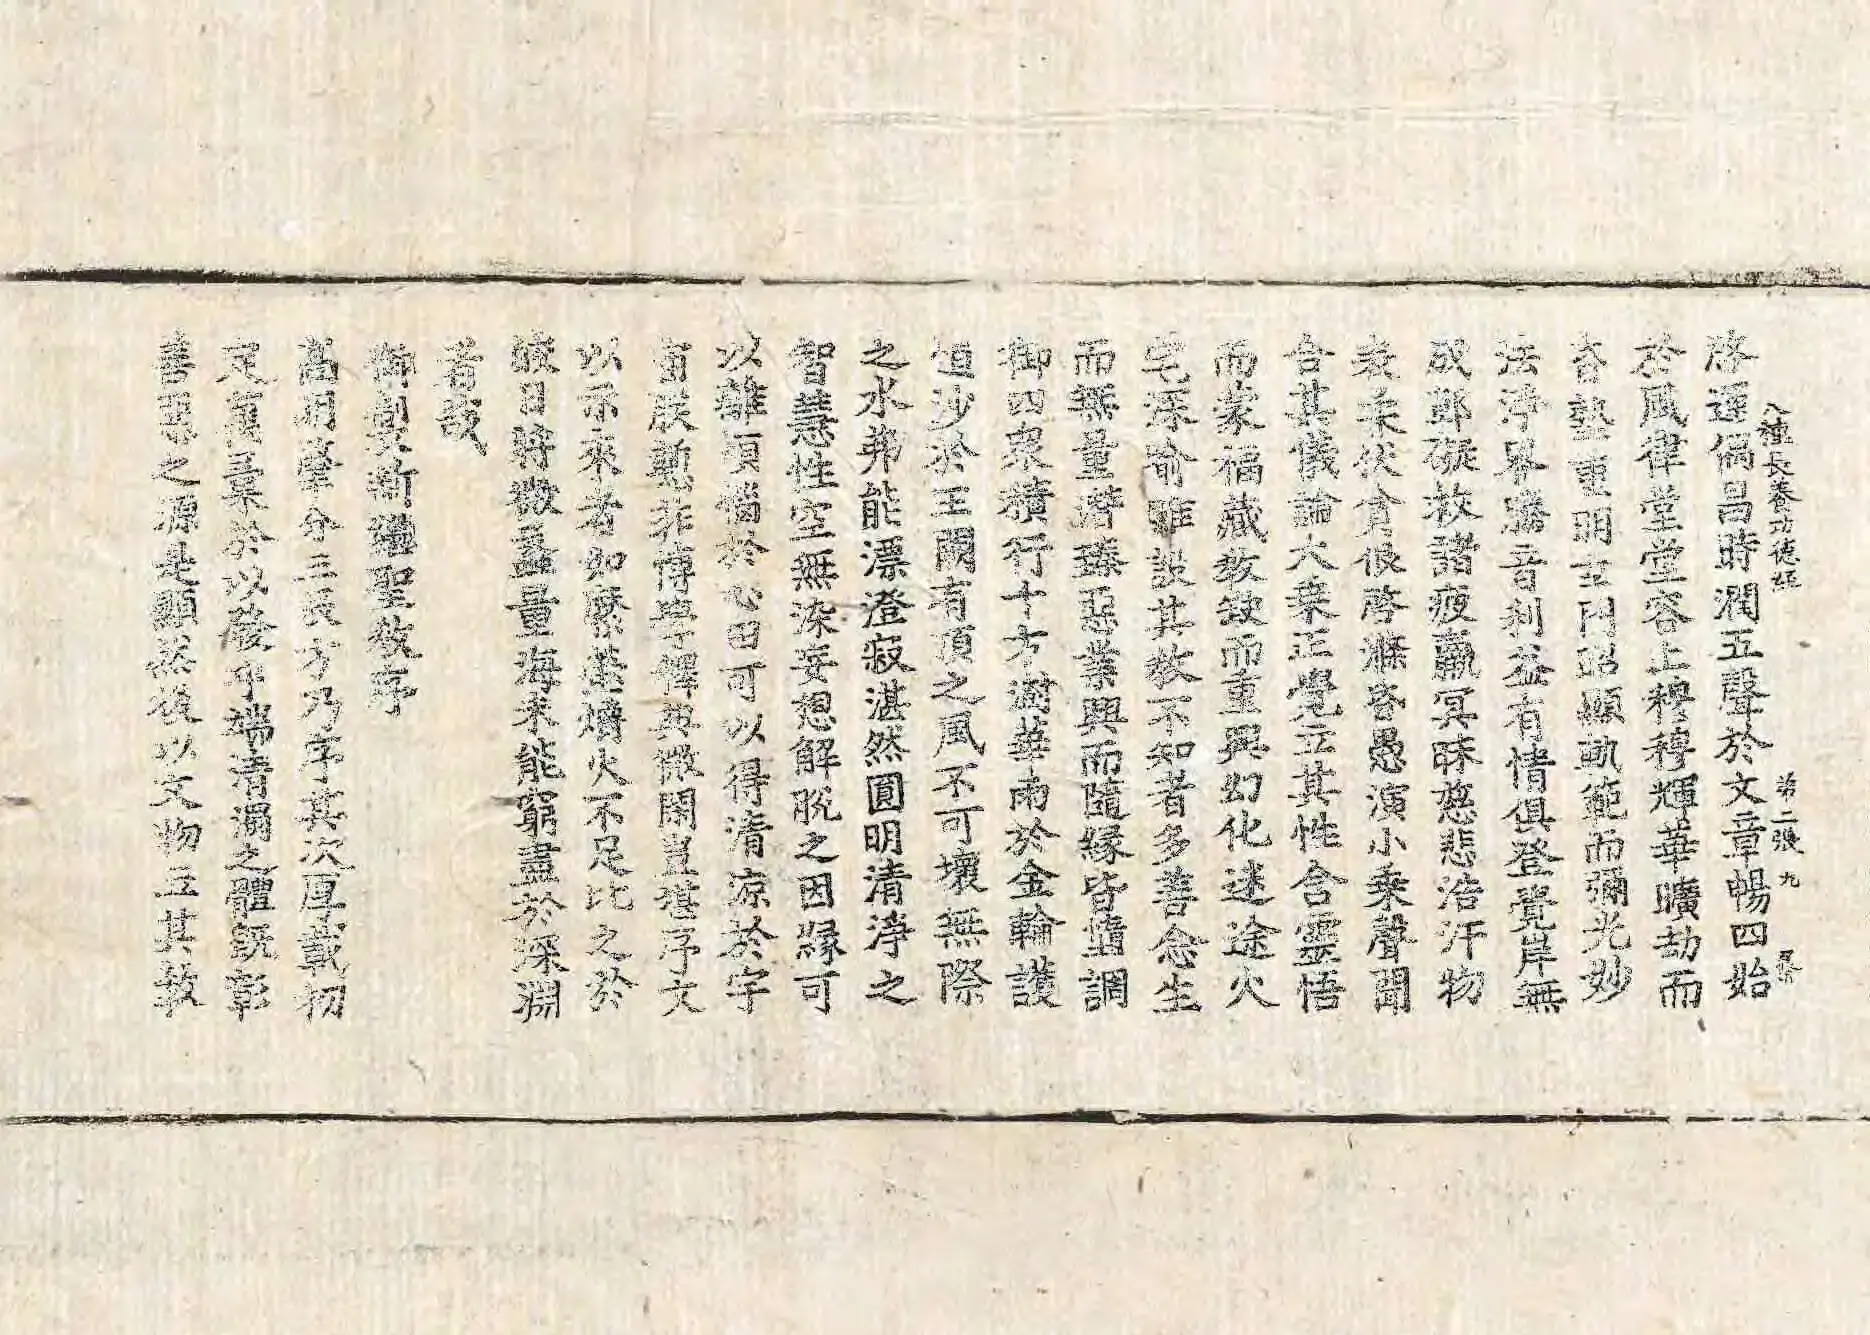 八種長養功德經　第二張　九
啓運偶昌時潤五聲於文章暢四始
於風律堂堂容上穆穆輝華曠劫而
昏墊重明玄門昭顯軌範而彌光妙
法淨界騰音利益有情俱登覺岸無
成鄣礙救諸疲羸冥昧慈悲浩汗物
表柔伏貪很啓滌昏愚演小乘聲聞
合其儀論大乘正覺立其性含靈悟
而蒙福藏教缺而重興幻化迷途火
宅深喻雖設其教不知者多善念生
而無量潛臻惡業興而隨緣皆墮調
御四衆積行十方澍華雨於金輪護
恒沙於王闕有頂之風不可壞無際
之水弗能漂澄寂湛然圓明清淨之
智慧性空無染妄想解脫之因緣可
以離煩惱於心田可以得清涼於宇
宙朕慙非博學釋典微閑豈堪序文
以示來者如縻縈爝火不足比之於
皦日將微蠡量海未能窮盡於深淵
者哉
御製新繼聖教序
高明肇分三辰方乃序其次厚載初
定萬彙於以發乎端清濁之體既彰
善惡之源是顯然後以文物立其教